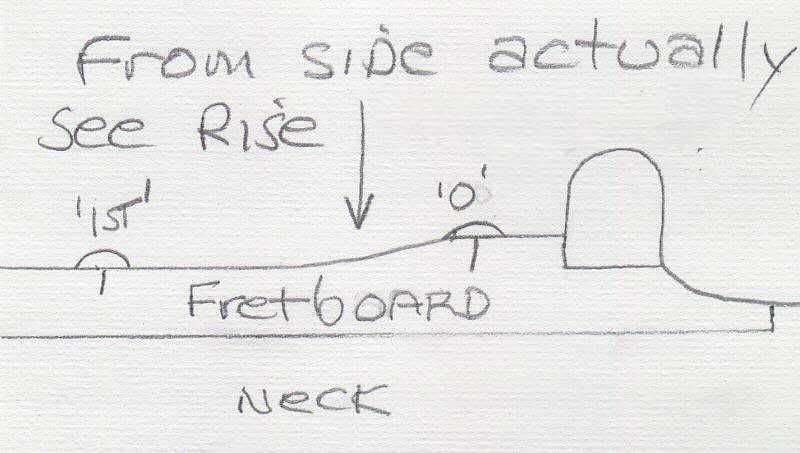 From side actually
see Rise
'1st' '0'
FretboARD
Neck